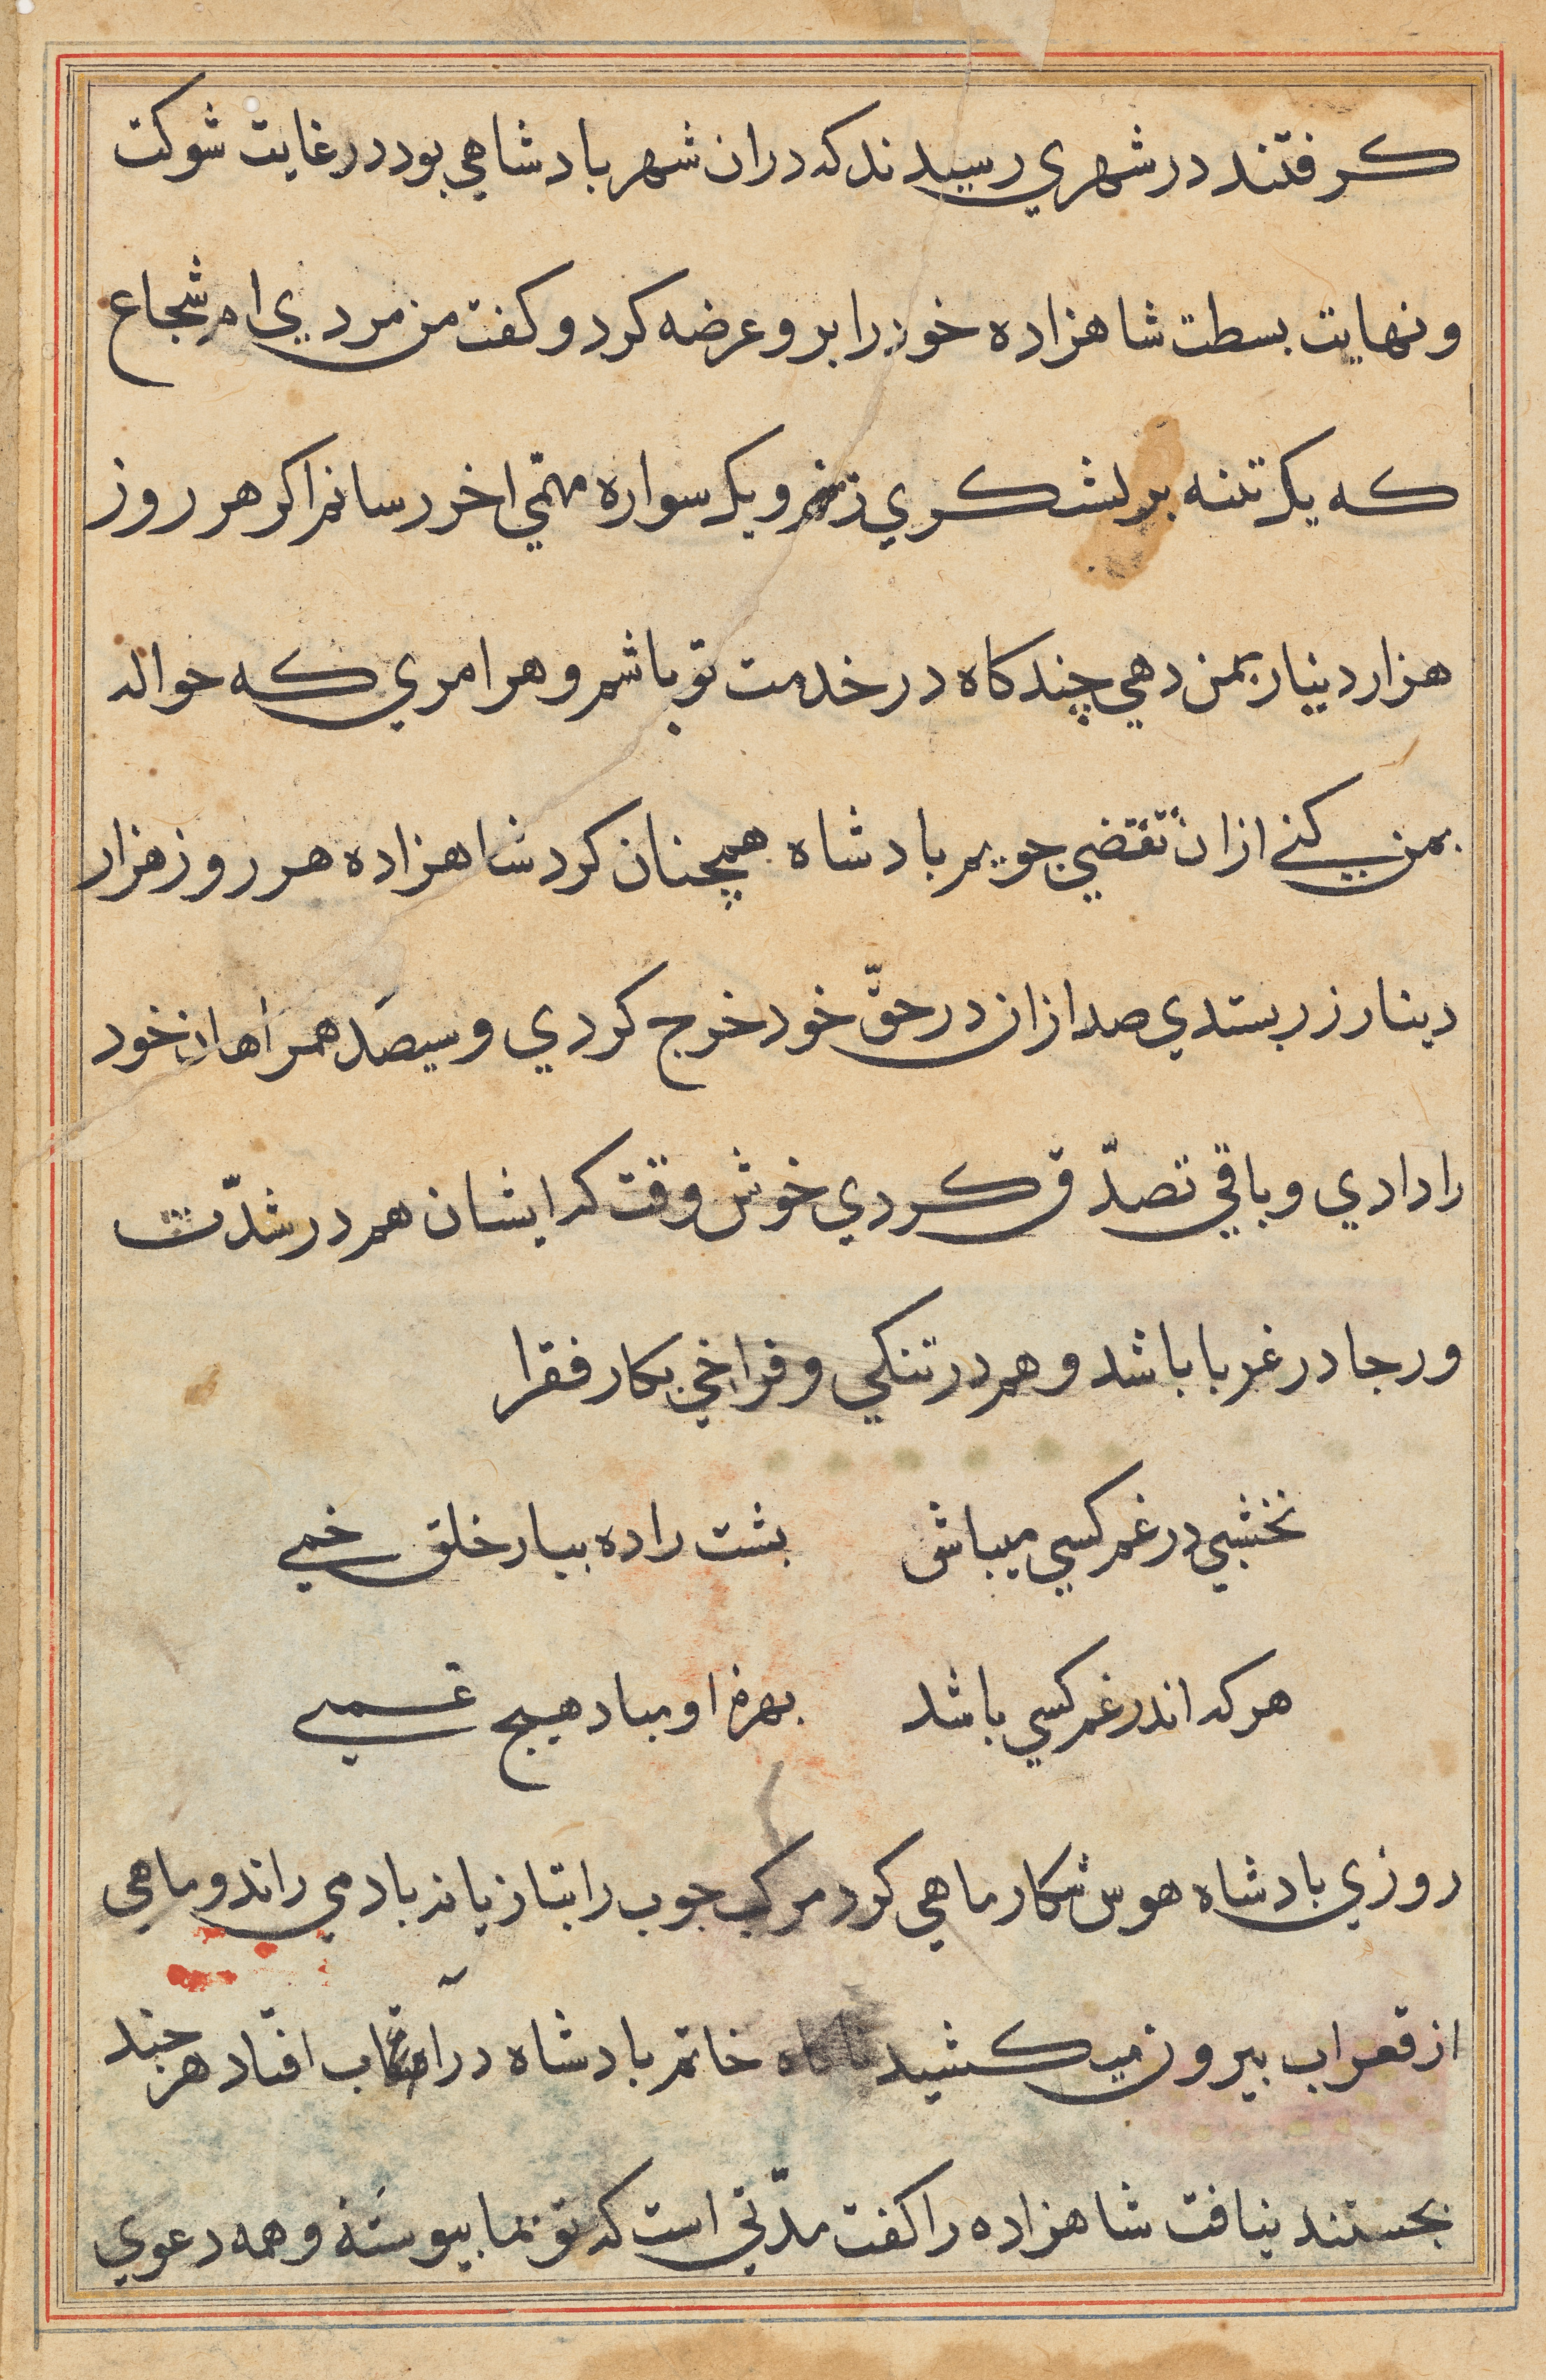 کرفتند در شهري رسیدند که دران شهر بادشاهي بود در غایت شوکت
و نهایت بسطت شاهزاده خود را برو عرضه کرد و کفت من مردي ام شجاع
که یک تنه بر لشکري زنم و یک سواره مهمّي اخر رسانم اکر هر روز
هزار دینار بمن دهي چند کاه در خدمت تو باشم و هر امري که حواله
بمن کنے ازان تفصّي جویم بادشاه همچنان کرد شاهزاده هر روز هزار
دینار زر بستدي صد ازان در حقّ خود خرج کردي و سیصد همراهان خود
را دادي و باقي تصدّق کردي خوش وقت که ایشان هم در شدّت
و رجا در غربا باشد و هم در تنکي و فراخي بکار فقرا
نخشبي در غم کسي میباش بشت را ده ببار خلق خمي
هر که اندر غم کسي باشد بهرهٔ او مباد هیچ غمے
روزي بادشاه هوس شکار ماهي کرد مرکب جوب را بتازیانه باد مي راند و ماهي
از قعر اب بیرون میکشید ناکاه خاتم بادشاه در اب افتاد هر جند
بجستند نیافت شاهزاده را کفت مدّتي است که تو بما بیوستهٔ و همه دعوي